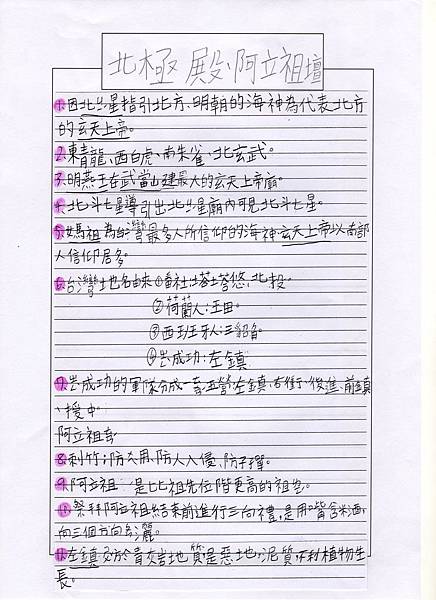 北極殿、阿立祖壇
1.因北少星指引北方、明朝的海神為代表北方
的玄天上帝。
2.東青龍、西白虎、南朱雀、北玄武。
3.明燕王在武當山建最大的玄天上帝廟。
4.北斗七星導引出北少星廟內可見北斗七星。
5.媽祖為台灣最多人所信仰的海神玄天上帝以南部
人信仰居多。
6.台灣土也名由來①番社:塔塔悠、北投
②荷蘭人:王田。
③西班牙人:三貂角。
④成功:左鎮
7.成功的軍隊分成五營左鎮、右衝、後進、前鎮
、援中
阿立祖
8.刺竹:防火用、防人入侵、防子彈。
9.阿立祖 是比祖先位階更高的祖
10.祭拜阿立祖結束前進行三向禮,是用嘴含米酒,
向三個方向灑。
11.左鎮 青灰岩地質是惡地,泥質,不利植物生
長。